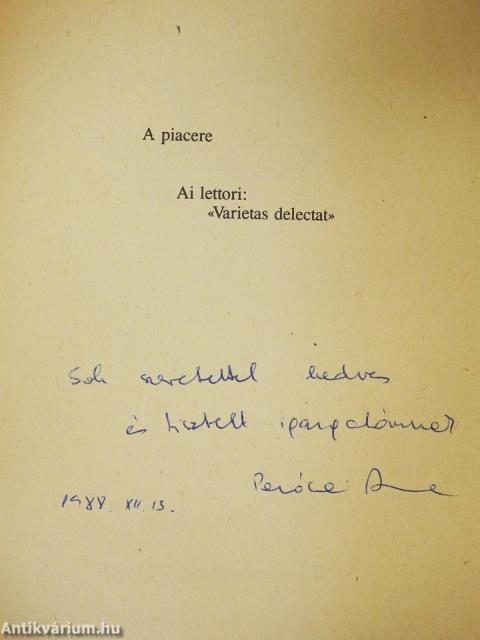 A piacere
Ai lettori:
«Varietas delectat»
Sok szeretettel kedves
és tisztelt igazgatómnak
1988. XII. 13.
Antikvárium.hu